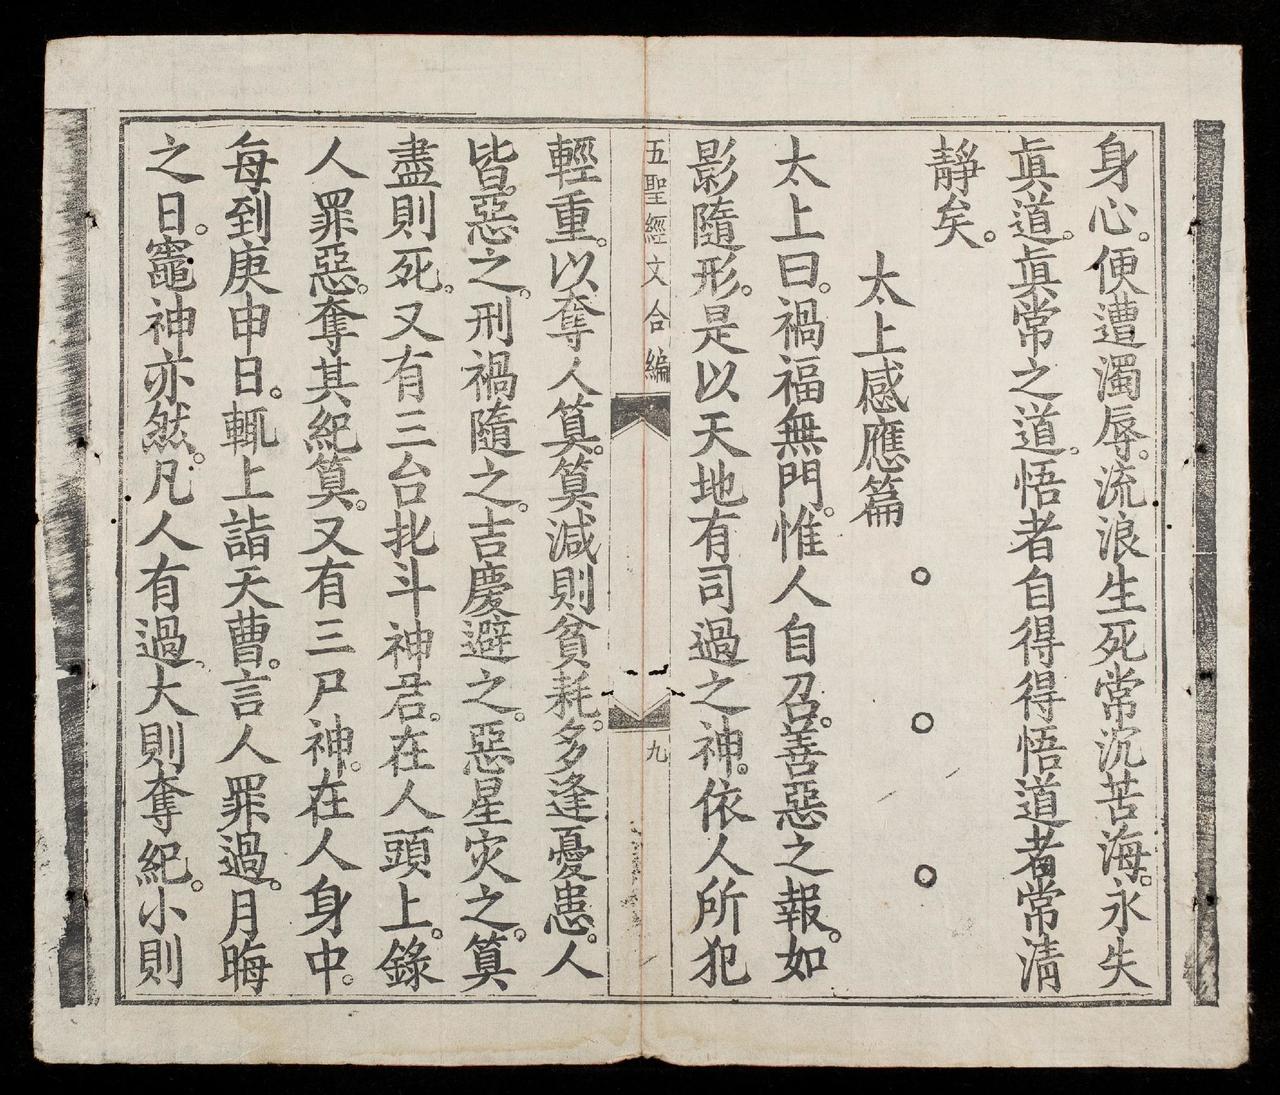 身心。便遭濁辱。流浪生死常沉苦海。永失
眞道。眞常之道。悟者自得得悟道者常清
靜矣。
太上感應篇
太上曰。禍福無門。惟人自召。善惡之報。如
影隨形。是以天地有司過之神。依人所犯
五聖經文合編
九
輕重。以奪人算。算減則貧耗。多逢憂患。人
皆惡之。刑禍隨之。吉慶避之。惡星灾之。算
盡則死。又有三台北斗神君。在人頭上。錄
人罪惡。奪其紀算。又有三尸神。在人身中。
每到庚申日。輒上詣天曹。言人罪過。月晦
之日。竈神亦然。凡人有過。大則奪紀。小則